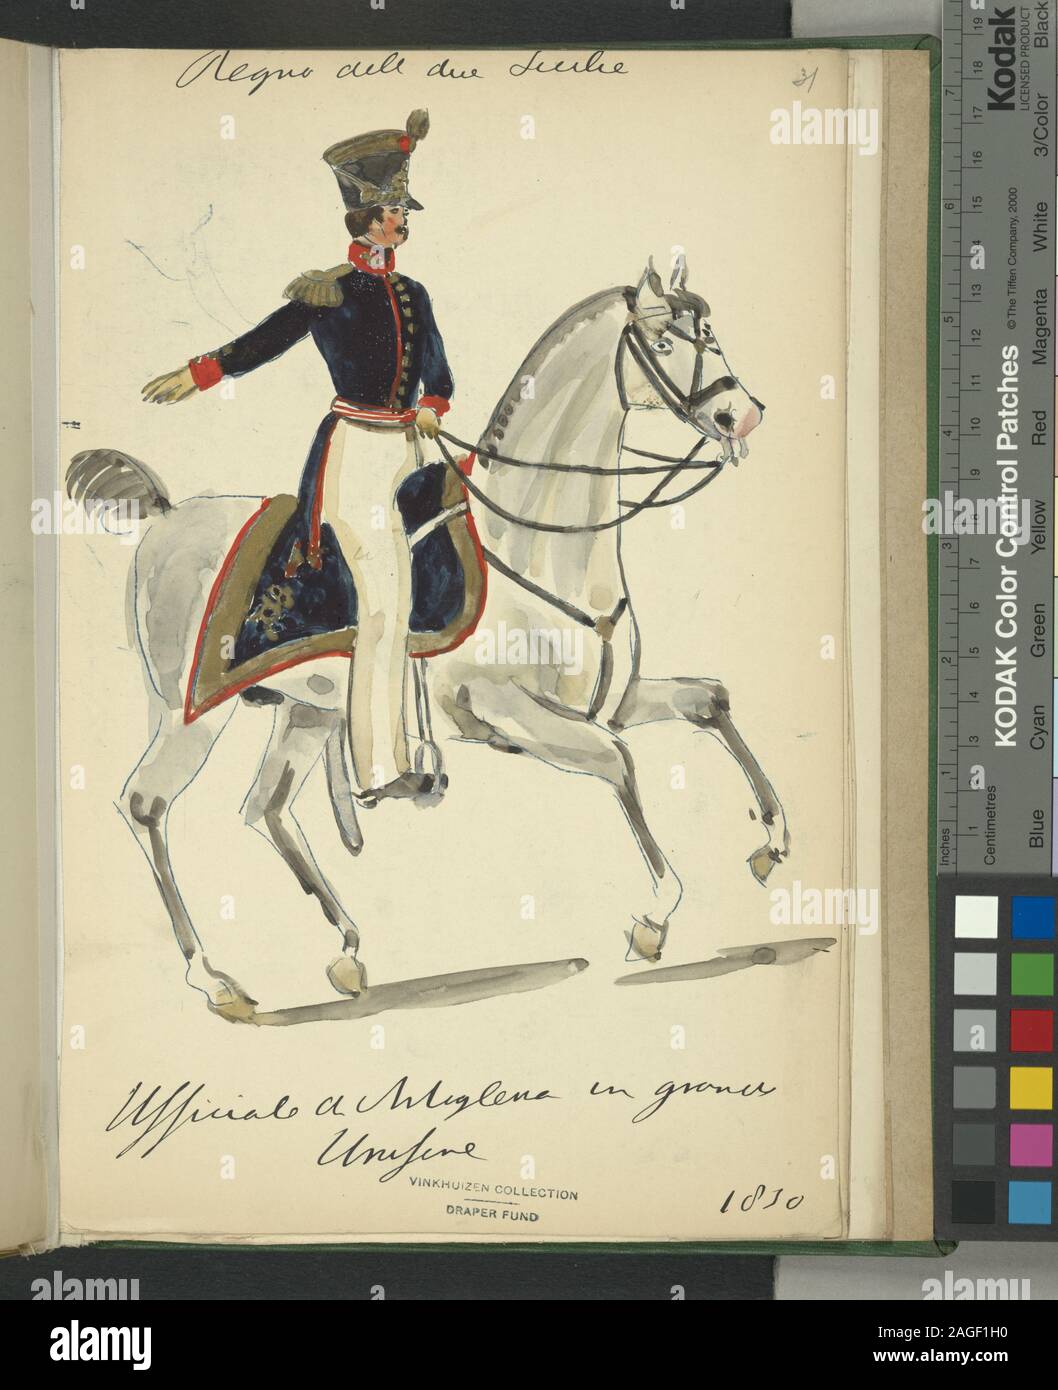 Regno dell due Sicilie
31
Ufficiale di Artiglieria in grande
Uniforme
VINKHUIZEN COLLECTION
DRAPER FUND
1830
Kodak
LICENSED PRODUCT
KODAK Color Control Patches
© The Tiffen Company, 2000
Blue Cyan Green Yellow Red Magenta White 3/Color Black
Inches 1 2 3 4 5 6 7
Centimetres 1 2 3 4 5 6 7 8 9 10 11 12 13 14 15 16 17 18 19
alamy
alamy
Image ID: 2AGF1H0
www.alamy.com